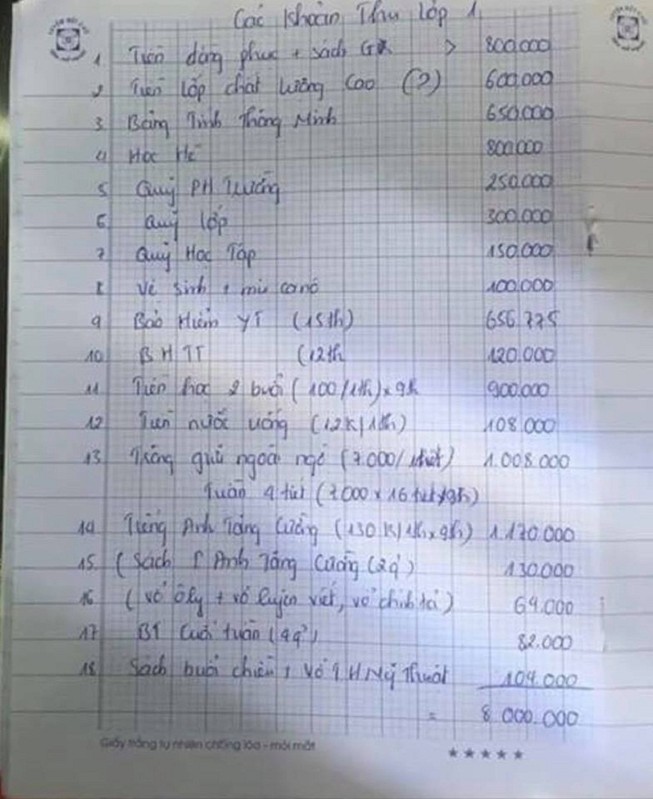 Các Khoản Thu Lớp 1
1 Tiền đồng phục + sách GK > 800.000
2 Tiền lớp chất lượng cao (?) 600.000
3 Bảng Tính Thông Minh 650.000
4 Học Hè 800.000
5 Quỹ PH Trường 250.000
6 Quỹ lớp 300.000
7 Quỹ Học Tập 150.000
8 Vệ sinh + 100.000
9 Bảo Hiểm YT (15th) 656.775
10 BHTT (12th 120.000
11 Tiền học 2 buổi (100/1th) x 9th 900.000
12 Tiền nước uống (12K/1th) 108.000
13 ngoại ngữ (7.000/1tiết) 1.008.000
Tuần 4 tiết (7.000 x 16 tiết/9th)
14 Tiếng Anh Tăng Cường (130K/1th x 9th) 1.170.000
15 (Sách T Anh Tăng Cường (2q) 130.000
16 (vở Ôly + vở luyện viết, vở chính tả) 69.000
17 BT Cuối tuần (4q) 82.000
18 Sách buổi chiều + Vở Mỹ Thuật 104.000
= 8.000.000
Giấy trắng tự nhiên chống lóa - mỏi mắt
★★★★★